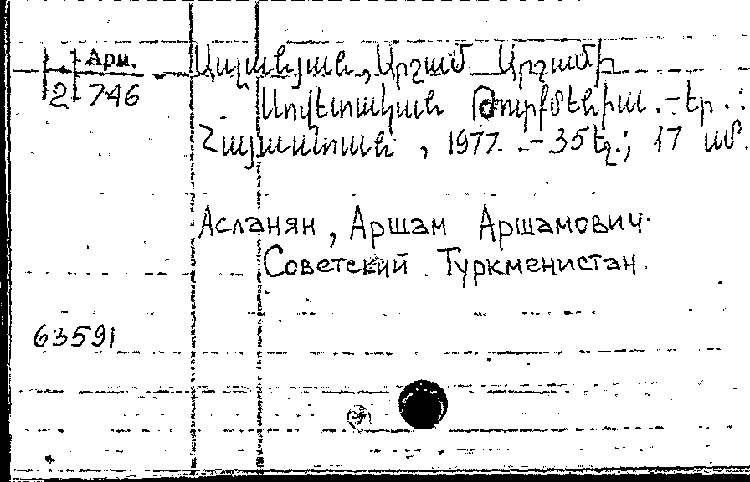 Арм.
2 746
Ասլանյան, Արշամ Արշամի
Սովետական Թուրքմենիա. - Եր.:
Հայաստան, 1977. - 35 էջ.; 17 սմ.
Асланян, Аршам Аршамович.
Советский Туркменистан.
63591